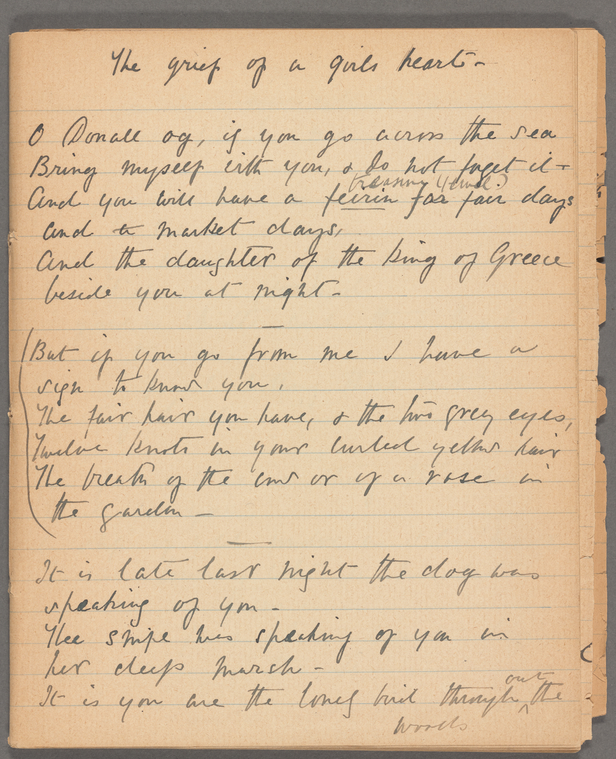 The grief of a girls heart-
O Donall og, if you go across the sea
Bring myself with you, & do not forget it-
And you will have a feirin for fair days
and a market days,
And the daughter of the King of Greece
beside you at night-
But if you go from me I have a
sign to know you,
The fair hair you have, & the two grey eyes,
Twelve knots in your curled yellow hair
The breath of the cow or of a rose in
the garden -
It is late last night the dog was
speaking of you -
The snipe was speaking of you in
her deep marsh -
It is you are the lonely bird through out the
woods